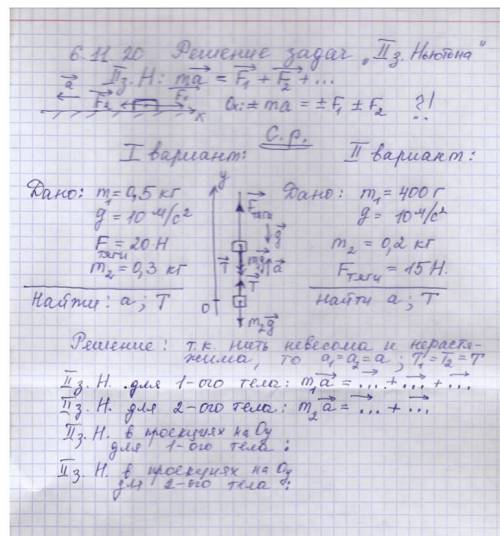 6.11.20 Решение задач „IIз. Ньютона"
IIз. Н: ma = F₁ + F₂ + ...
a F₂ F₁ x Ox: ±ma = ±F₁ ± F₂ ?!
С.р.
I вариант: II вариант:
Дано: m₁ = 0,5 кг
g = 10 м/с²
F тяги = 20 Н
m₂ = 0,3 кг
Найти: a ; T
y
F тяги
g
T m₁g a
T
0
m₂g
Дано: m₁ = 400 г
g = 10 м/с²
m₂ = 0,2 кг
F тяги = 15 Н.
Найти a ; T
Решение: т.к. нить невесома и нерастя-
жима, то a₁ = a₂ = a ; T₁ = T₂ = T
IIз. Н. для 1-ого тела: m₁a = ... + ... + ...
IIз. Н. для 2-ого тела: m₂a = ... + ...
IIз. Н. в проекциях на Oy
для 1-ого тела :
IIз. Н. в проекциях на Oy
для 2-ого тела :